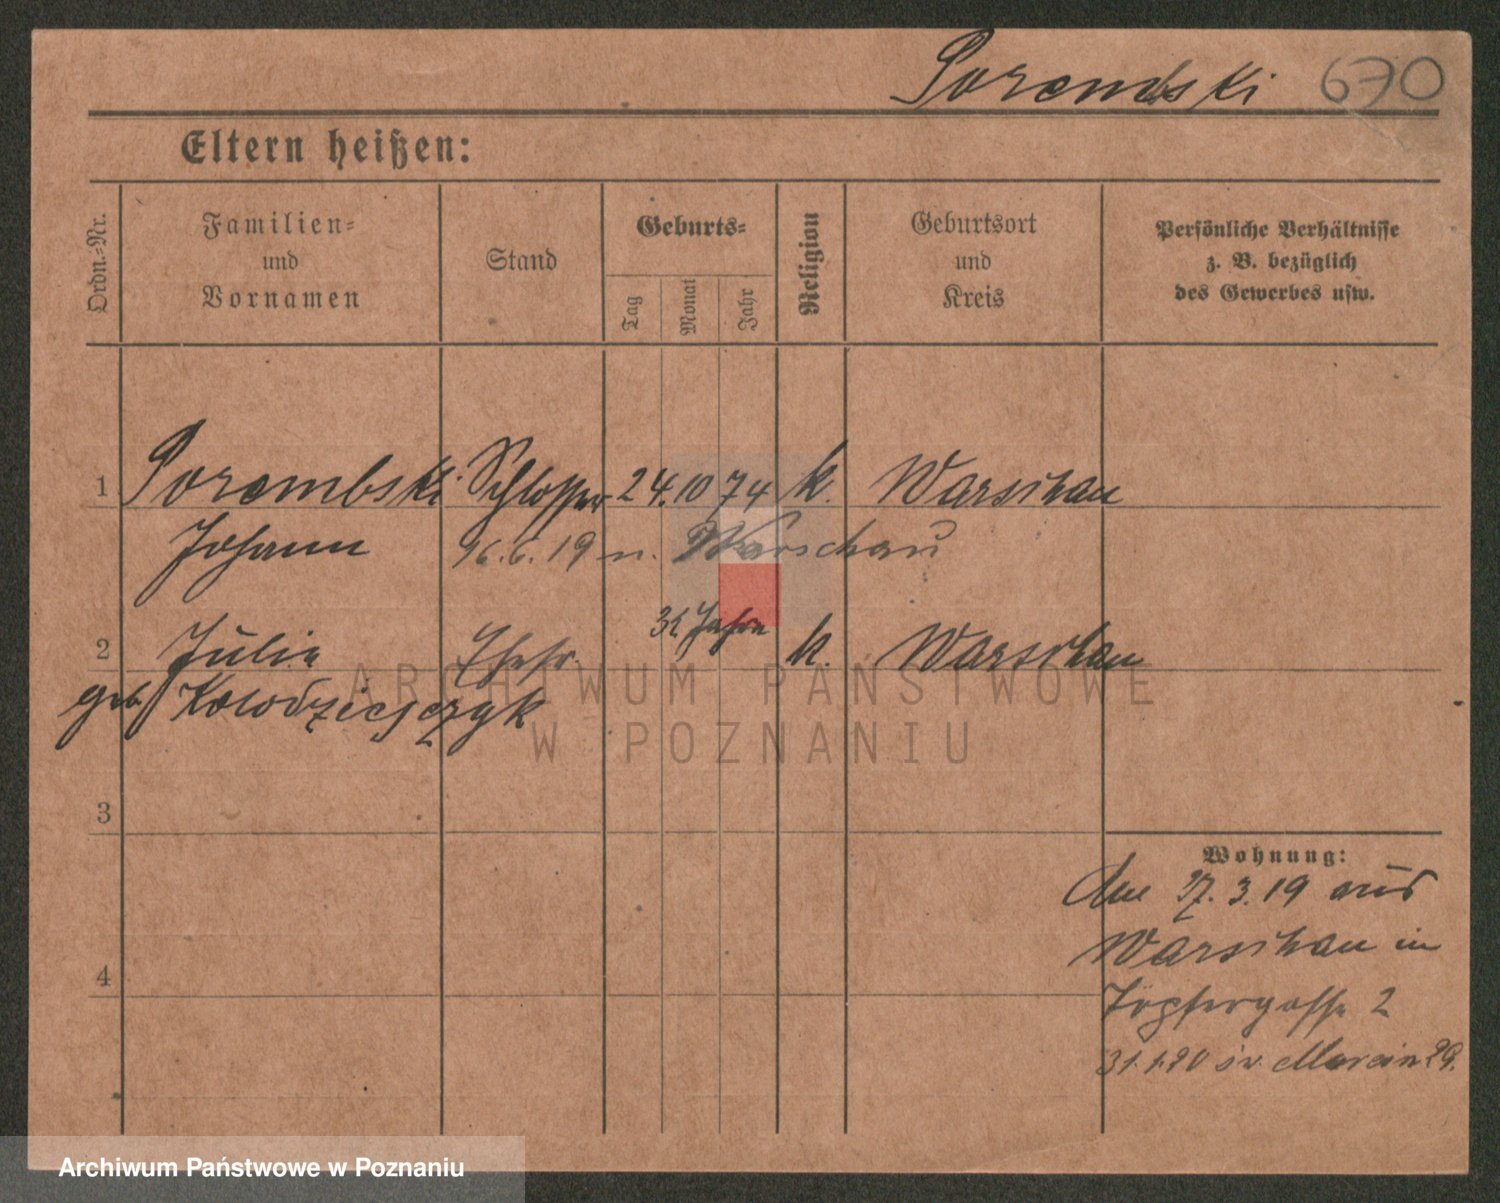 Porembski 670
Eltern heißen:
Ordn.-Nr.
Familien-
und
Vornamen
Stand
Geburts-
Tag
Monat
Jahr
Religion
Geburtsort
und
Kreis
Persönliche Verhältnisse
z. B. bezüglich
des Gewerbes usw.
1 Porembski Schlosser 24. 10 74 k. Warschau
Johann 16. 6. 19 n. Warschau
2 Julie Ehefr. Jahre k. Warschau
geb. Kolodziejczyk
ARCHIWUM PAŃSTWOWE
W POZNANIU
3
4
Wohnung:
27. 3. 19 aus
Warschau in
Töpfergasse 2
31. 1. 20 św. Marcin 29.
Archiwum Państwowe w Poznaniu